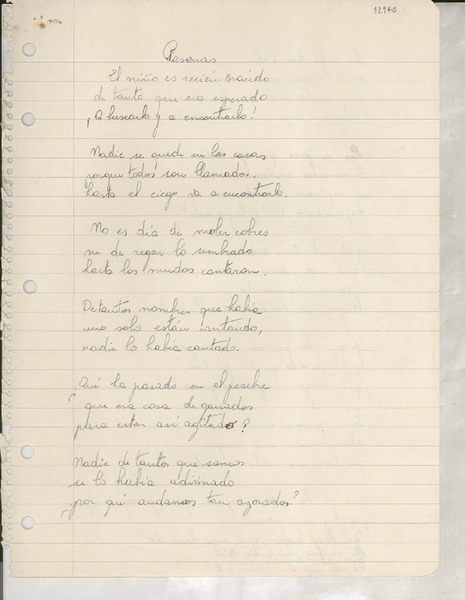 12140
Pascuas
El niño es recién nacido
de tanto que era esperado
¡A buscarlo y a encontrarlo!
Nadie se quede en las casas
porque todos son llamados.
hasta el ciego va a encontrarlo.
No es día de moler cobres
ni de regar lo sembrado
hasta los mudos cantaran.
De tantos nombres que había
uno solo están cantando,
nadie lo había cantado.
Qué ha pasado en el pesebre
¿ que era cosa de ganados
para estar así agitados?
Nadie de tantos que somos
se lo había adivinado
¿por qué andamos tan azorados?